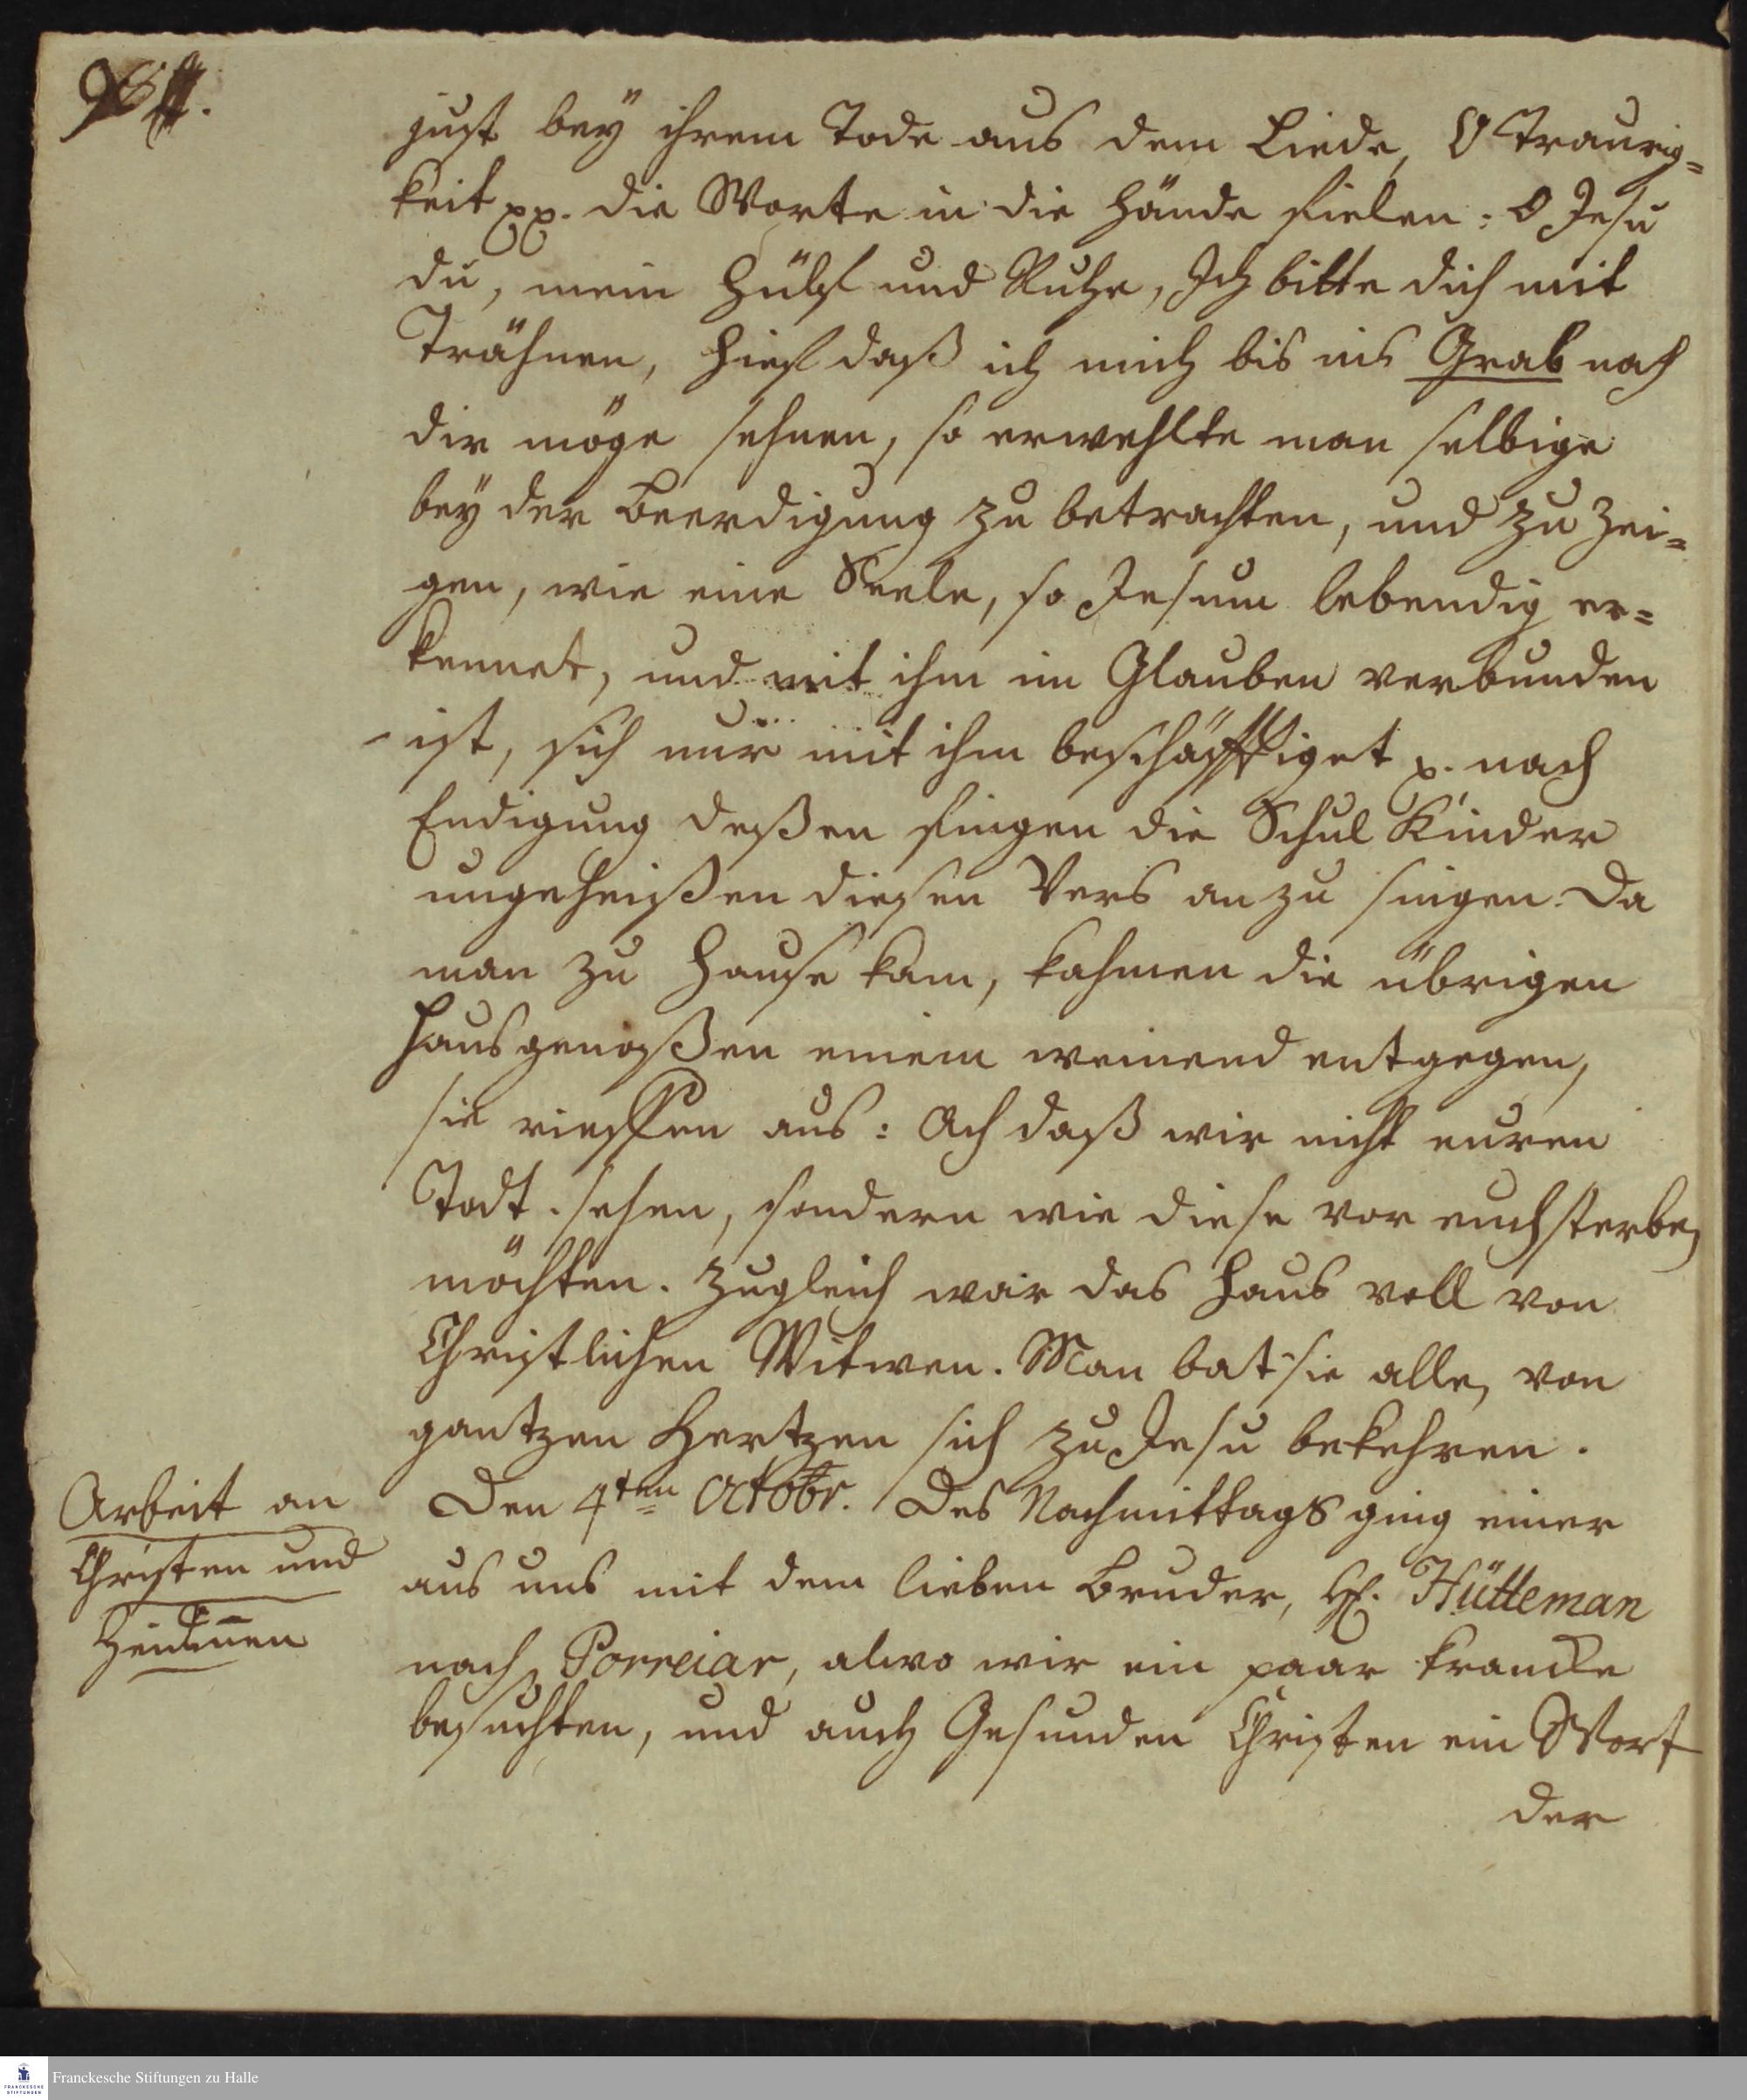 just bey ihrem Tode aus dem Liede, O Traurig=
keit pp. die Worte in die Hände fielen: O Jesu
du, mein Hülf und Ruhe, Ich bitte dich mit
Trähnen, Hief daß ich mich bis ins Grab nach
dir möge sehnen, so erwehlte man selbige
bey der Beerdigung zu betrachten, und zu zei=
gen, wie eine Seele, so Jesum lebendig er=
kennet, und mit ihm im Glauben verbunden
ist, sich nur mit ihm beschäfftiget p. nach
Endigung deßen fingen die Schul Kinder
ungeheißen diesen Vers an zu singen. Da
man zu Hause kam, kahmen die übrigen
Hausgenoßen einem weinend entgegen,
sie rieffen aus: Ach daß wir nicht euren
Todt sehen, sondern wie diese vor euch sterben
möchten. Zugleich war das Haus voll von
Christlichen Witwen. Man bat sie alle, von
gantzen Hertzen sich zu Jesu bekehren.
Arbeit an
Christen und
Heidenen
Den 4ten Octobr. Des Nachmittags ging einer
aus uns mit dem lieben Bruder, H. Hütteman
nach Porreiar, alwo wir ein paar krancke
besuchten, und auch Gesunden Christen ein Wort
der
Franckesche Stiftungen zu Halle
FRANCKESCHE
STIFTUNGEN